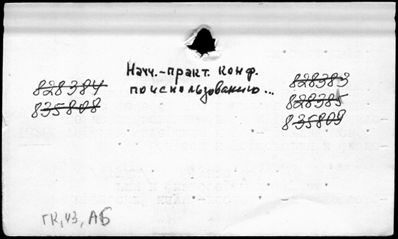 Науч.-практ. конф.
по использованию...
828384
835808
828383
828385
835809
ГК, ЧЗ, АБ